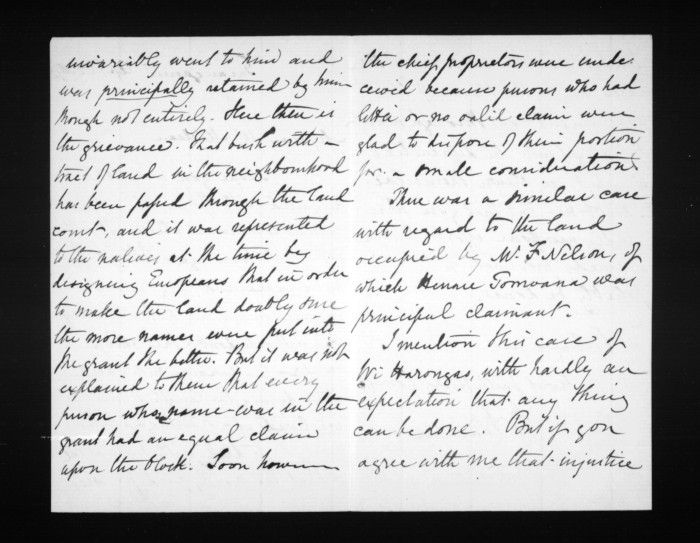 invariably went to him and
was principally retained by him
though not entirely. Here then is
the grievance. That bush with a
tract of land in the neighbourhood
has been passed through the land
court, and it was represented
to the natives at the time by
designing Europeans that in order
to make the land doubly sure
the more names were put into
the grant the better. But it was not
explained to them that every
person whose name was in the
grant had an equal claim
upon the block. Soon however
the chief proprietors were unde
ceived because persons who had
little or no valid claim were
glad to dispose of their portion
for a small consideration.
There was a similar case
with regard to the land
occupied by Mr. F Nelson, of
which Henare Tomoana was
principal claimant.
I mention this case of
Wi Harongas, with hardly an
expectation that any thing
can be done. But if you
agree with me that injustice